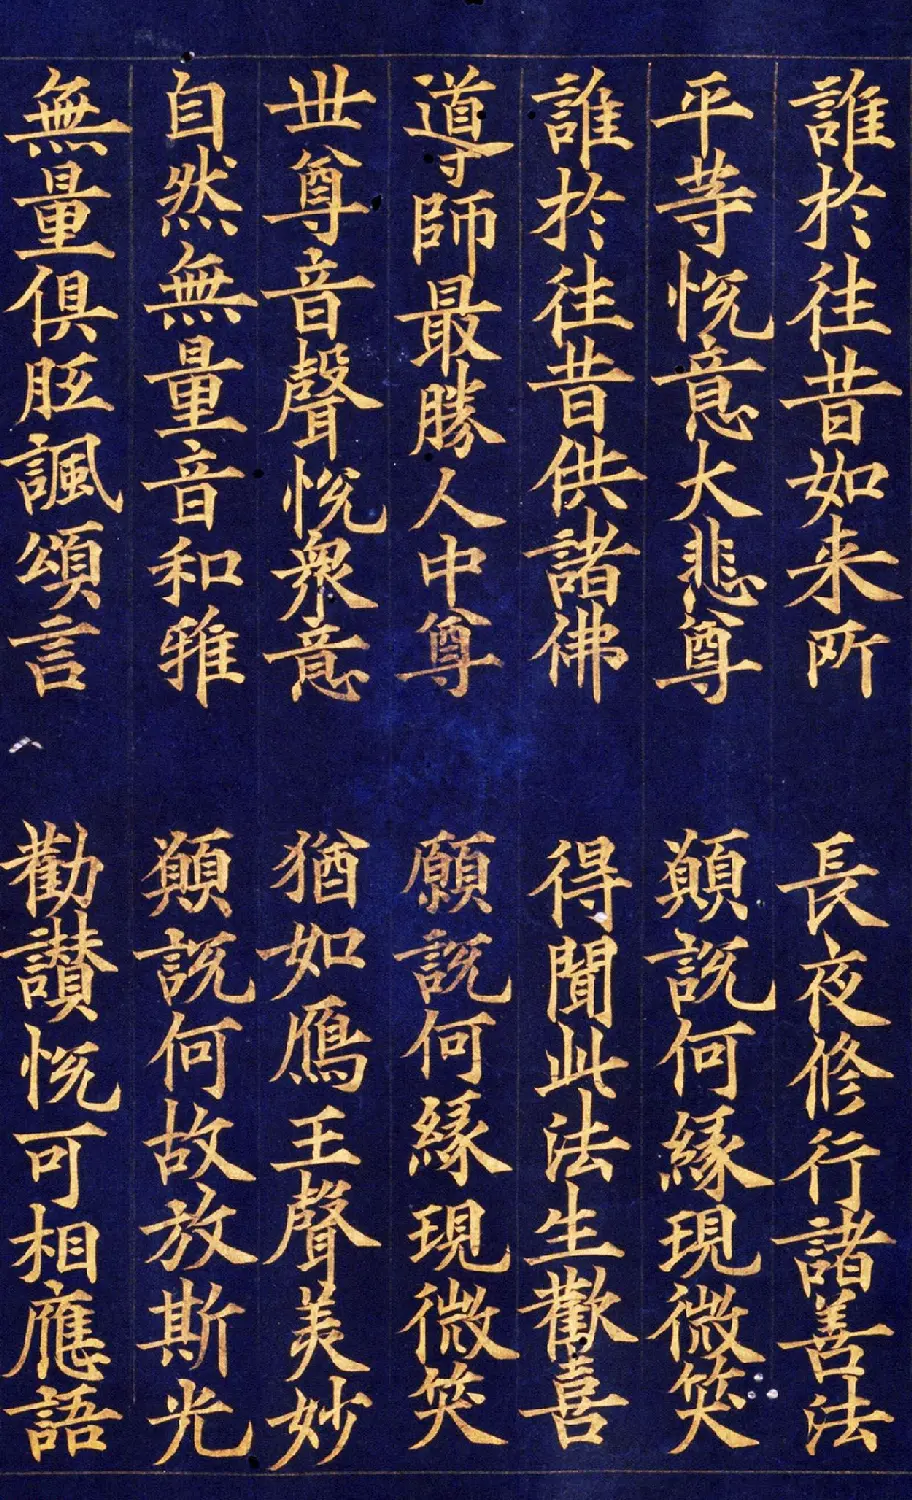 誰於往昔如来所 長夜修行諸善法
平等恱意大悲尊 顛説何縁現微笑
誰於往昔供諸佛 得聞此法生歡喜
導師最勝人中尊 願説何縁現微笑
丗尊音聲恱衆意 猶如鴈王聲美妙
自然無量音和雅 顛説何故放斯光
無量俱胝諷頌言 勸讃恱可相應語